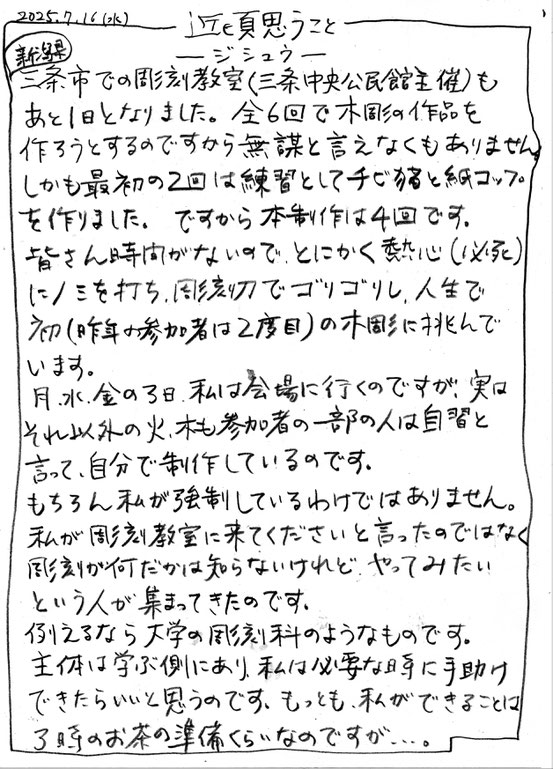 2025.7.16(水)
近頃思うこと
―ジシュウ―
新潟県
三条市での彫刻教室(三条中央公民館主催)も
あと1日となりました。全6回で木彫の作品を
作ろうとするのですから無謀と言えなくもありません。
しかも最初の2回は練習としてチビ猪と紙コップ
を作りました。ですから本制作は4回です。
皆さん時間がないので、とにかく熱心(必死)
にノミを打ち、彫刻刀でゴリゴリし、人生で
初(昨年の参加者は2度目)の木彫に挑んで
います。
月、水、金の3日、私は会場に行くのですが、実は
それ以外の火、木も参加者の一部の人は自習と
言って、自分で制作しているのです。
もちろん私が強制しているわけではありません。
私が彫刻教室に来てくださいと言ったのではなく
彫刻が何だかは知らないけれど、やってみたい
という人が集まってきたのです。
例えるなら大学の彫刻科のようなものです。
主体は学ぶ側にあり、私は必要な時に手助け
できたらいいと思うのです、もっとも、私ができることは
3時のお茶の準備くらいなのですが…。